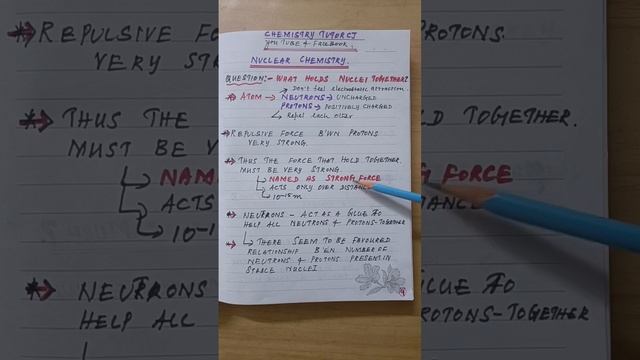 CHEMISTRY TUTOR CJ
YOUTUBE & FACEBOOK
NUCLEAR CHEMISTRY.
QUESTION:- WHAT HOLDS NUCLEI TOGETHER?
Don't feel electrostatic attraction.
* ATOM → NEUTRONS → UNCHARGED
PROTONS → POSITIVELY CHARGED
Repel each other
REPULSIVE FORCE B'WN PROTONS
VERY STRONG.
THUS THE FORCE THAT HOLD TOGETHER.
MUST BE VERY STRONG.
NAMED AS STRONG FORCE
ACTS ONLY OVER DISTANCE
10-15m
NEUTRONS - ACT AS A GLUE TO
HELP ALL NEUTRONS & PROTONS-TOGETHER
THERE SEEM TO BE FAVOURED
RELATIONSHIP B'EN NUMBER OF
NEUTRONS & PROTONS PRESENT IN
STABLE NUCLEI